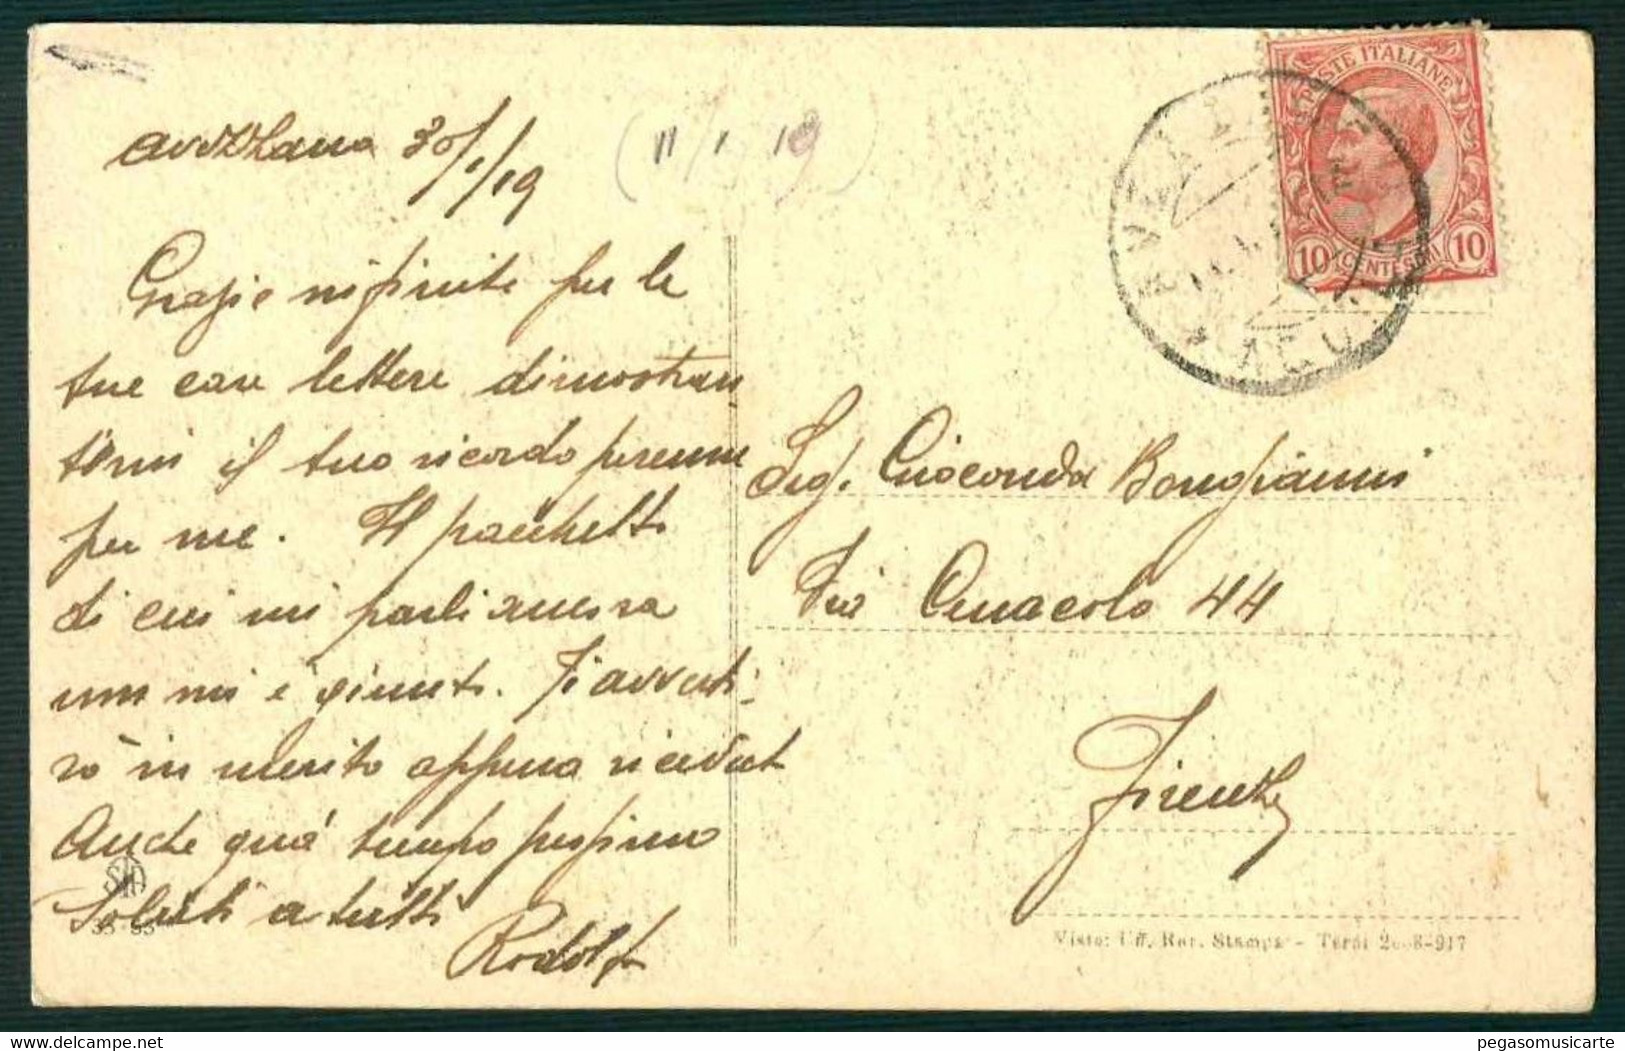 Avezzano 30/1/19
(11 1 19)
Grazie infinite per le
tue care lettere dimostran
temi il tuo ricordo perenne
per me. Il pacchetto
di cui mi parli ancora
non mi è giunto. Ti avverti-
rò in merito appena ricevuto
Anche quà tempo pessimo
Saluti a tutti
Rodolfo
35 - 53
POSTE ITALIANE
10 CENTESIMI 10
AQUILA
Sig. Gioconda Bongianni
Via Cenacolo 44
Firenze
Visto: Uff. Rev. Stampa - Terni
pegasomusicarte